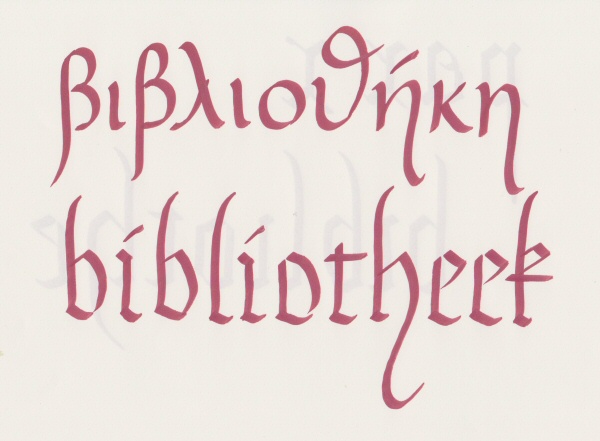 βιβλιοθήκη
bibliotheek